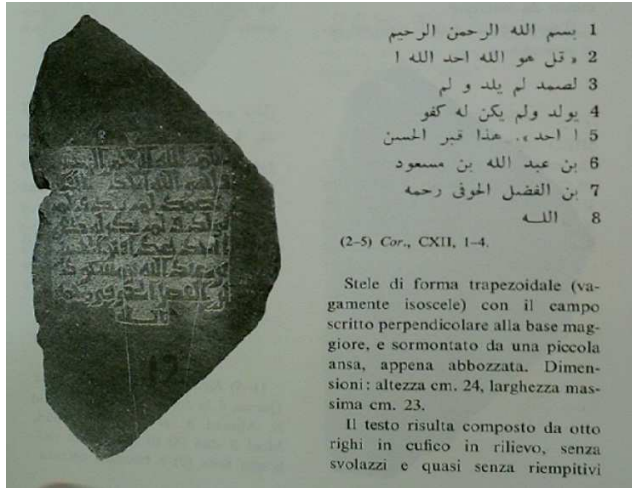 1 بسم الله الرحمن الرحيم
2 « قل هو الله احد الله ا
3 لصمد لم يلد و لم
4 يولد ولم يكن له كفو
5 ا احد ». هذا قبر الحسن
6 بن عبد الله بن مسعود
7 بن الفضل الحوفى رحمه
8 اللـــه
(2-5) Cor., CXII, 1-4.
Stele di forma trapezoidale (va-
gamente isoscele) con il campo
scritto perpendicolare alla base mag-
giore, e sormontato da una piccola
ansa, appena abbozzata. Dimen-
sioni: altezza cm. 24, larghezza mas-
sima cm. 23.
Il testo risulta composto da otto
righi in cufico in rilievo, senza
svolazzi e quasi senza riempitivi
12